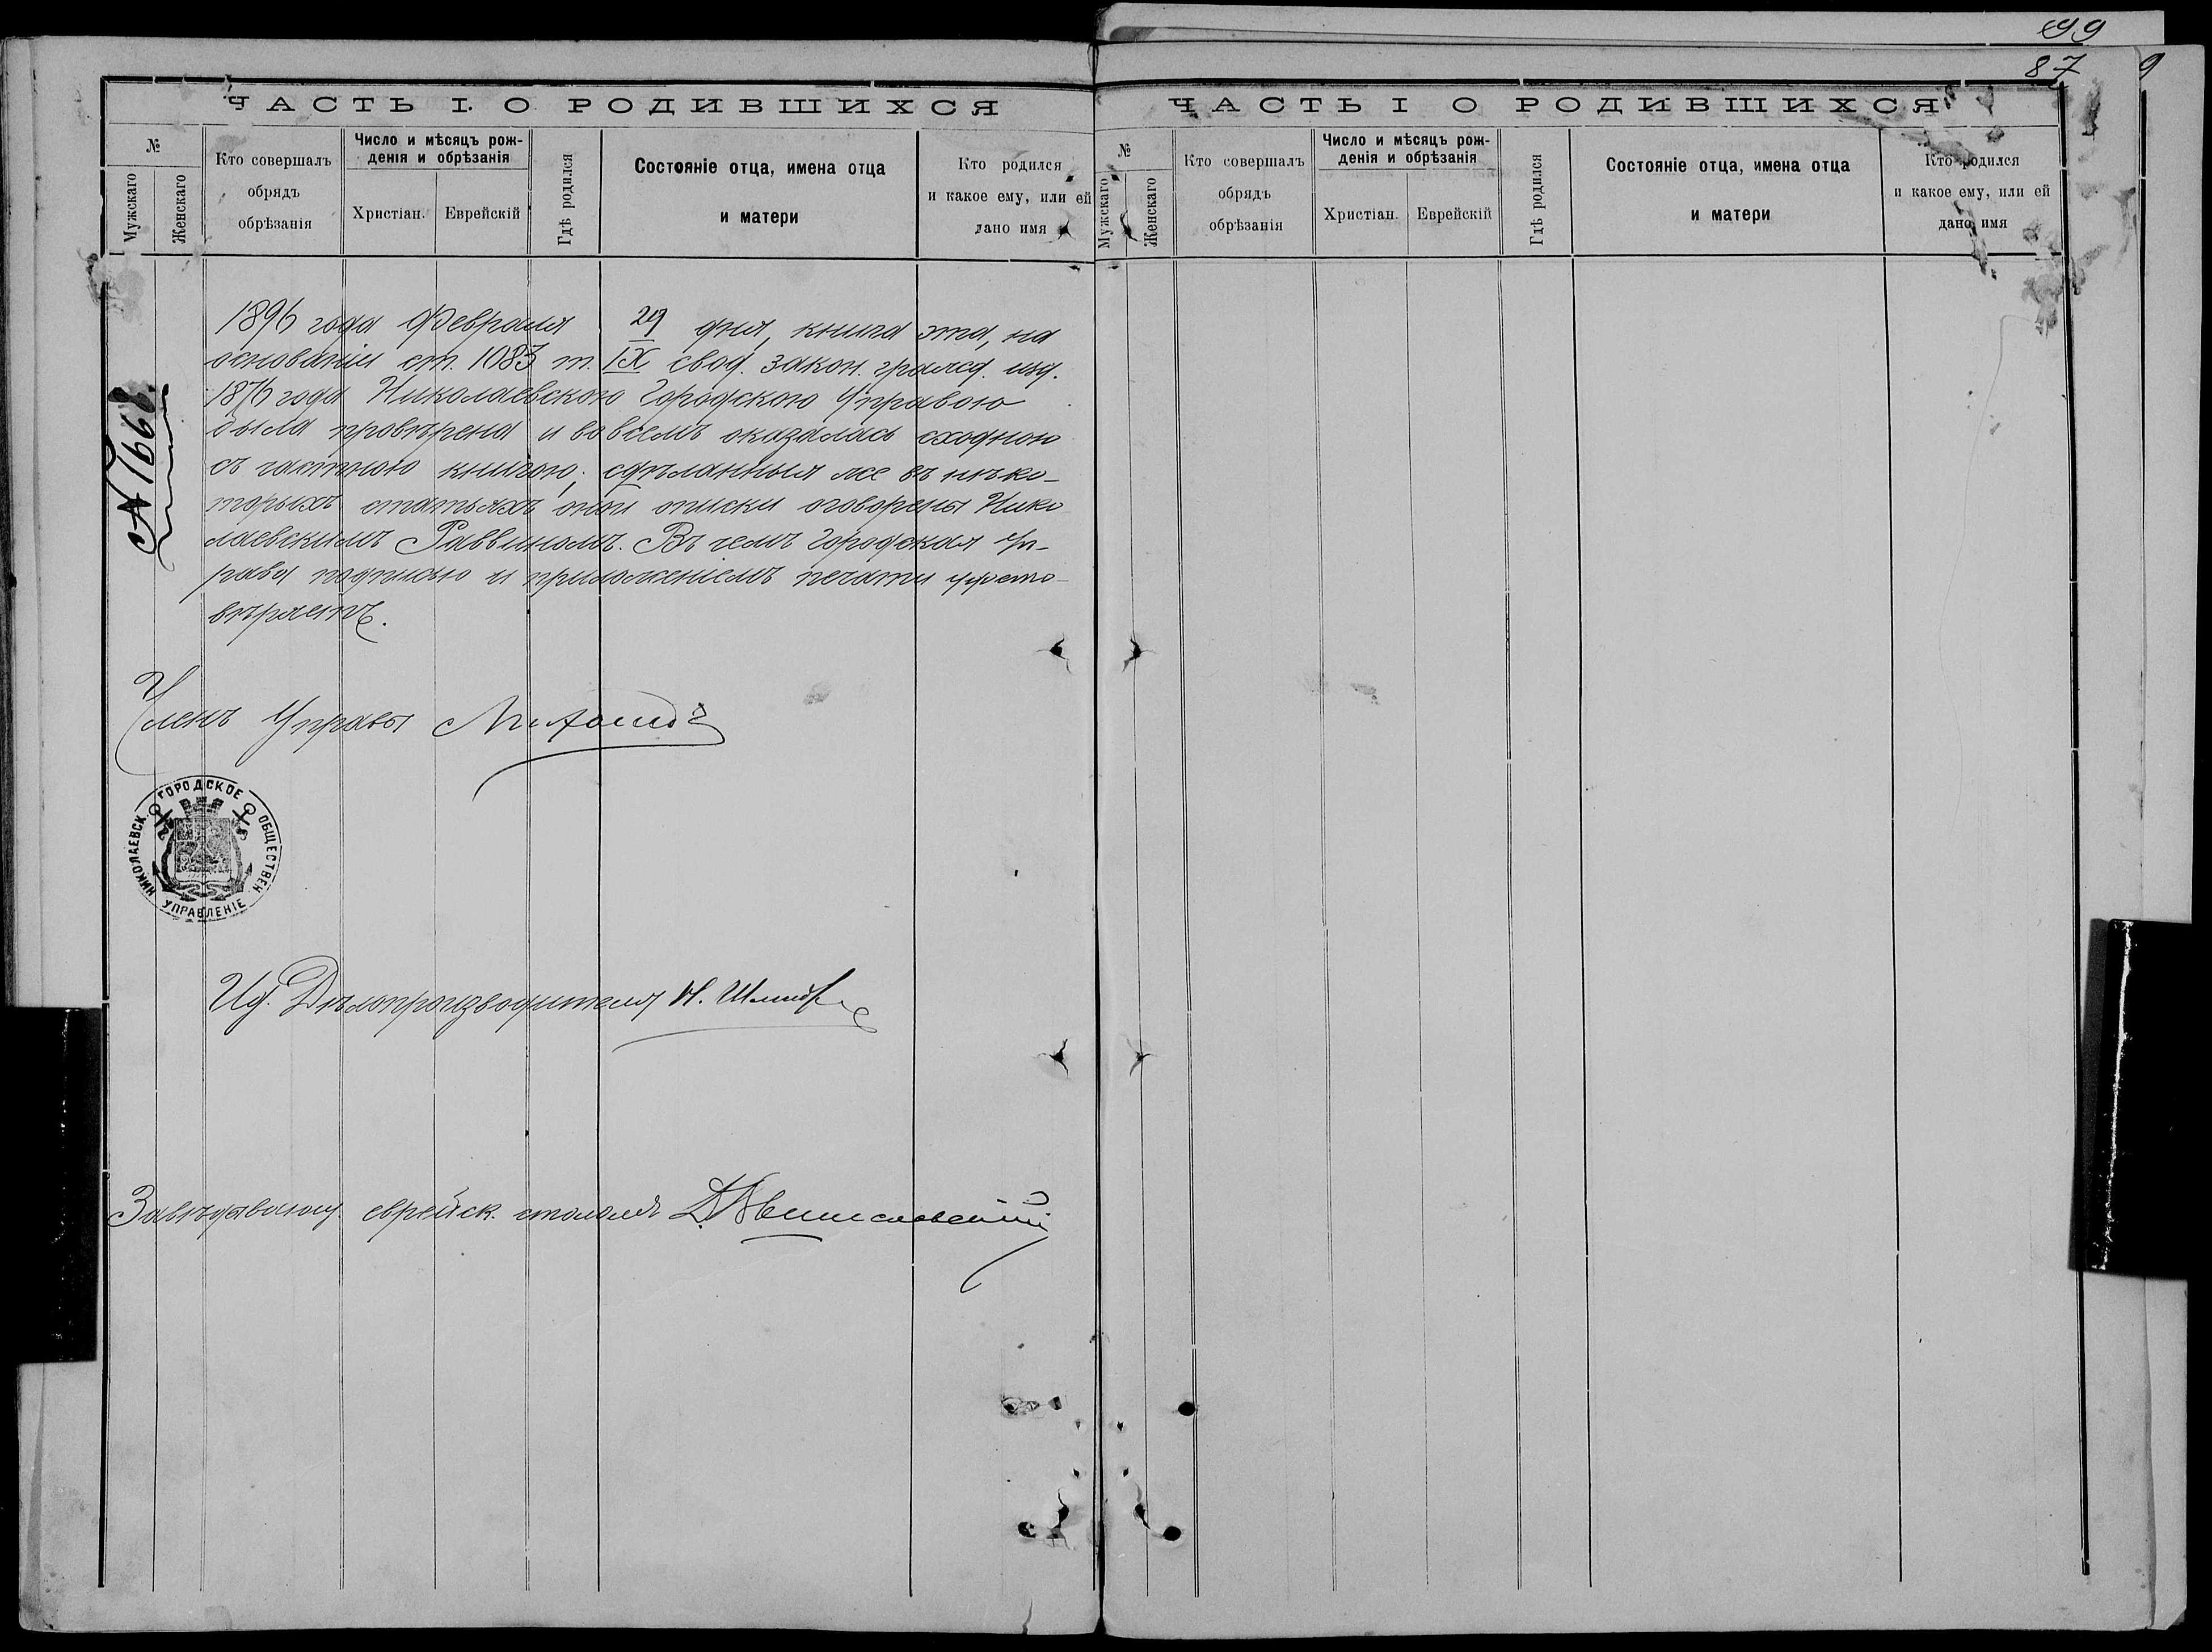 99
87
9
ЧАСТЬ I. О РОДИВШИХСЯ
№
Мужскаго
Женскаго
Кто совершалъ
обрядъ
обрѣзанія
Число и мѣсяцъ рож-
денія и обрѣзанія
Христіан.
Еврейскій
Гдѣ родился
Состояніе отца, имена отца
и матери
Кто родился
и какое ему, или ей
дано имя
1896 года Февраля 29 дня, книга эта, на
основаніи ст. 1083 т. IX свод. закон. гражд. изд.
1876 года Николаевскою Городскою Управою
была провѣрена и вовсемъ оказалась сходною
съ частною книгою; сдѣланныя же въ нѣко-
торыхъ статьяхъ оной описки оговорены Нико
лаевскимъ Раввиномъ. Въ чемъ Городская Уп-
рава подписью и приложеніемъ печати удосто-
вѣряетъ.
№ 1668
Членъ Управы
НИКОЛАЕВСК ГОРОДСКОЕ ОБЩЕСТВЕН УПРАВЛЕНІЕ
Ид. Дѣлопроизводителя Н.
Завѣдывающ. еврейск. столомъ
ЧАСТЬ I О РОДИВШИХСЯ
№
Мужскаго
Женскаго
Кто совершалъ
обрядъ
обрѣзанія
Число и мѣсяцъ рож-
денія и обрѣзанія
Христіан.
Еврейскій
Гдѣ родился
Состояніе отца, имена отца
и матери
Кто родился
и какое ему, или ей
дано имя